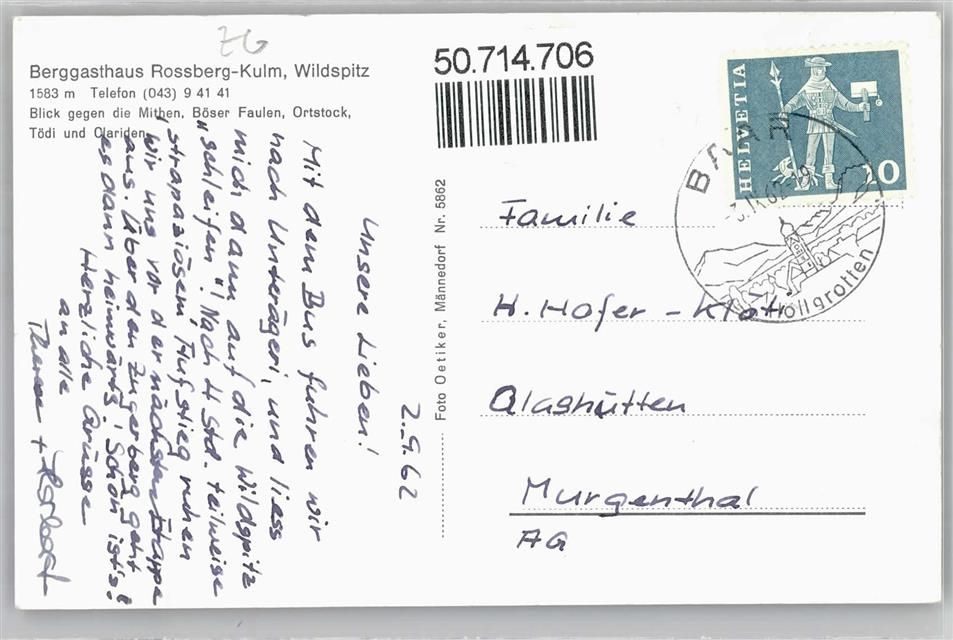 ZG
Berggasthaus Rossberg-Kulm, Wildspitz
1583 m Telefon (043) 9 41 41
Blick gegen die Mithen, Böser Faulen, Ortstock,
Tödi und Clariden
50.714.706
HELVETIA
10
BAAR
-3.IX.62-19
Höllgrotten
Foto Oetiker, Männedorf Nr. 5862
2.9.62
Unsere Lieben!
Mit dem Bus fuhren wir
nach Unterägeri, und liess
mich dann auf die Wildspitz
"schleifen"! Nach 4 Std. teilweise
strapaziösem Aufstieg ruhen
wir uns vor der nächsten Etappe
aus. Über den Zugerberg geht
es dann heimwärts. Schön ist's!
Herzliche Grüsse
an alle
Therese + Herbert
Familie
H. Hofer - Klöti
Glashütten
Murgenthal
AG